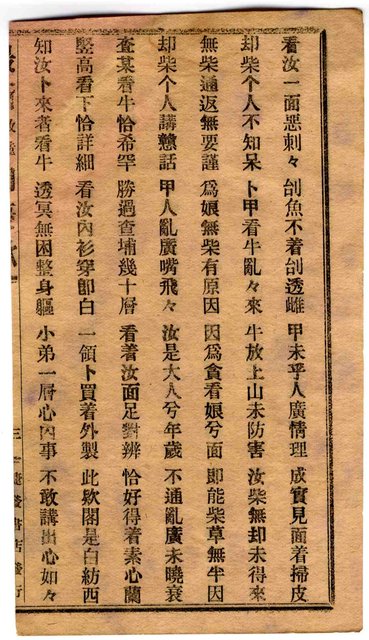 看汝一面惡刺々 刣魚不着刣透雌 甲未乎人廣情理 成實見面着掃皮
却柴个人不知呆 卜甲看牛亂々來 牛放上山未防害 汝柴無却未得來
無柴通返無要謹 爲娘無柴有原因 因爲貪看娘兮面 即能柴草無半因
却柴个人講戇話 甲人亂廣嘴飛々 汝是大人兮年歲 不通亂廣未曉衰
查某看牛恰希罕 勝過查埔幾十層 看着汝面足對辨 恰好得着素心蘭
竪高看下恰詳細 看汝內衫穿即白 一領卜買着外製 此欵閣是白紡西
知汝卜來者看牛 透冥無困整身軀 小弟一層心囟事 不敢講出心如々